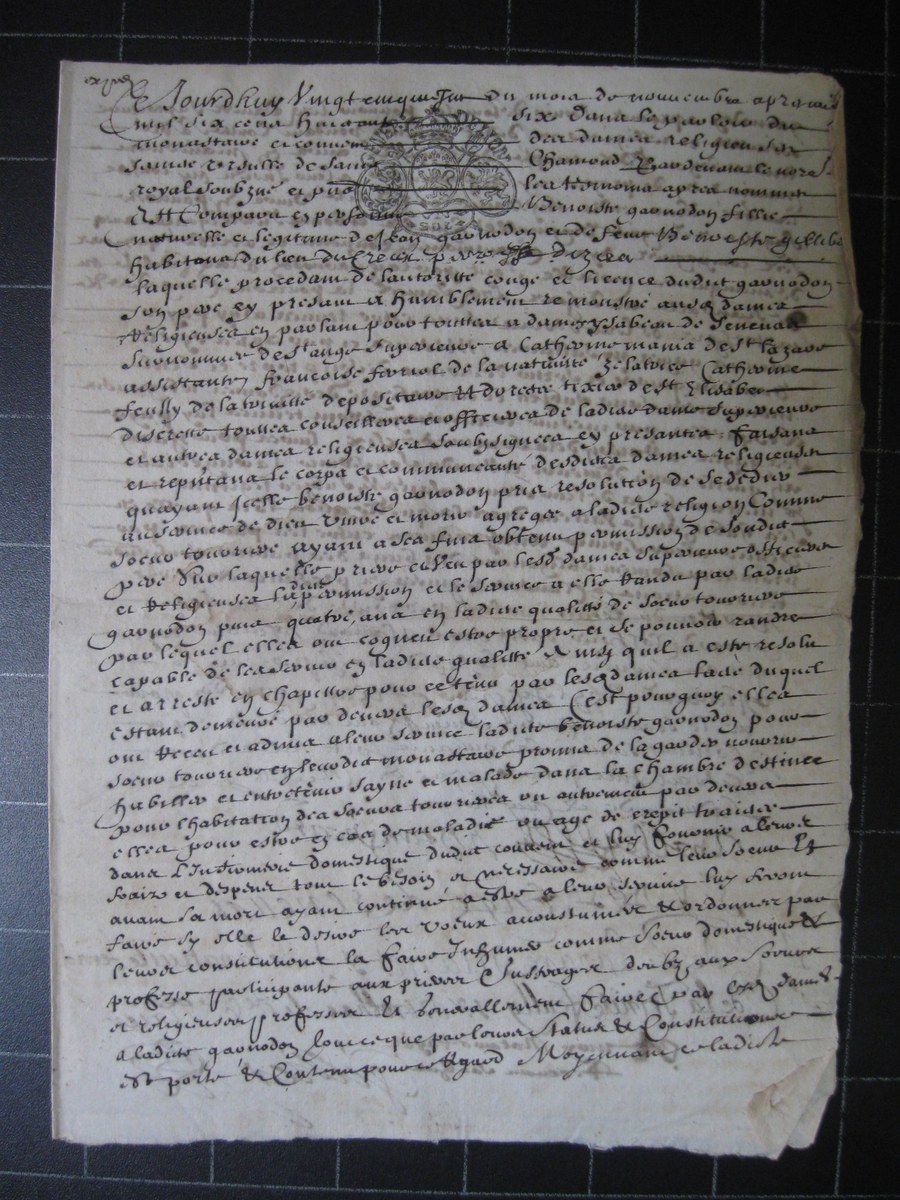 expedié
Ce Jourdhuy Vingt cinquiesme du mois de nouembre apres midy
mil six cens huictante six dans le parloir du
monastere et conuent des dames religieuses
sainte Vrsulle de saint Chamond Pardeuant le nore
royal soubzné et pnts les tesmoins apres nommes
Est Comparu en personne Benoiste gaonodon fillie
naturelle et legitime de Jean gaonodon et de feue Benoiste
habitans du lieu du Creux
laquelle procedant de lautoritté congé et licence dudit gaonodon
son pere cy presant a humblement remonstré ausd dames
Religieuses en parlant pour touttes a dames ysabeau de Seneuas
surnommée de st ange superieure Catherine maria de st lazare
assistante françoise feriol de la natiuitté Zelatrice Catherine
feully de la trinitté depositaire Et dorotee tixier de st Elisabet
discrette touttes conseilleres et officieres de ladite dame superieure
et autres dames religieuses soubzsignees cy presantes faisans
et reputans le corps et communeauté desdites dames religieuses
quayant Icelle benoiste gaonodon pris resolution de se dedier
au seruice de dieu viure et morir agregée a ladite religion Comme
soeur touriere ayant a ses fins obtenu permission de soudit
pere Sur laquelle priere et Veu par lesd dames superieure officieres
et Religieuses ladite permission et le seruice a elle Randu par ladite
gaonodon puis quatre ans en ladite qualitté de soeur touriere
par lequel elles ont cogneu estre propre et se pouuoir randre
capable de les seruir en ladite qualitté Ainsy quil a esté resolu
et arresté en chapittre pour ce tenu par lesd dames lacte duquel
estant demeuré par deuers lesd dames Cest pourquoy elles
ont Receu et admis a leur seruice ladite benoiste gaonodon pour
soeur touriere en leurdit monastere promis de la garder nourrir
habiller et entretenir sayne et malade dans la chambre destinee
pour lhabitation des soeurs tourieres ou autrement par deuers
elles pour estre en cas de maladie ou age de crepit traittée
dans Linfirmerie domestique dudit couuent et luy fournir a leurs
fraix et despens tout le besoin et necessaire comme leur soeur Et
auant sa mort ayant continué a estre a leur seruice luy feront
faire sy elle le desire les voeux accoustumés & ordonnez par
leurs constitutions la faire Inhumer comme soeur domestique &
professe participante aux prieres Suffrages deubz aux soeurs
et religieuses professes Et generallement faire par lesd dames
a ladite gaonodon tout ce que par leurs Statuts & Constitutions
est porté & Contenu pour ce Regard Moyennant ce ladite